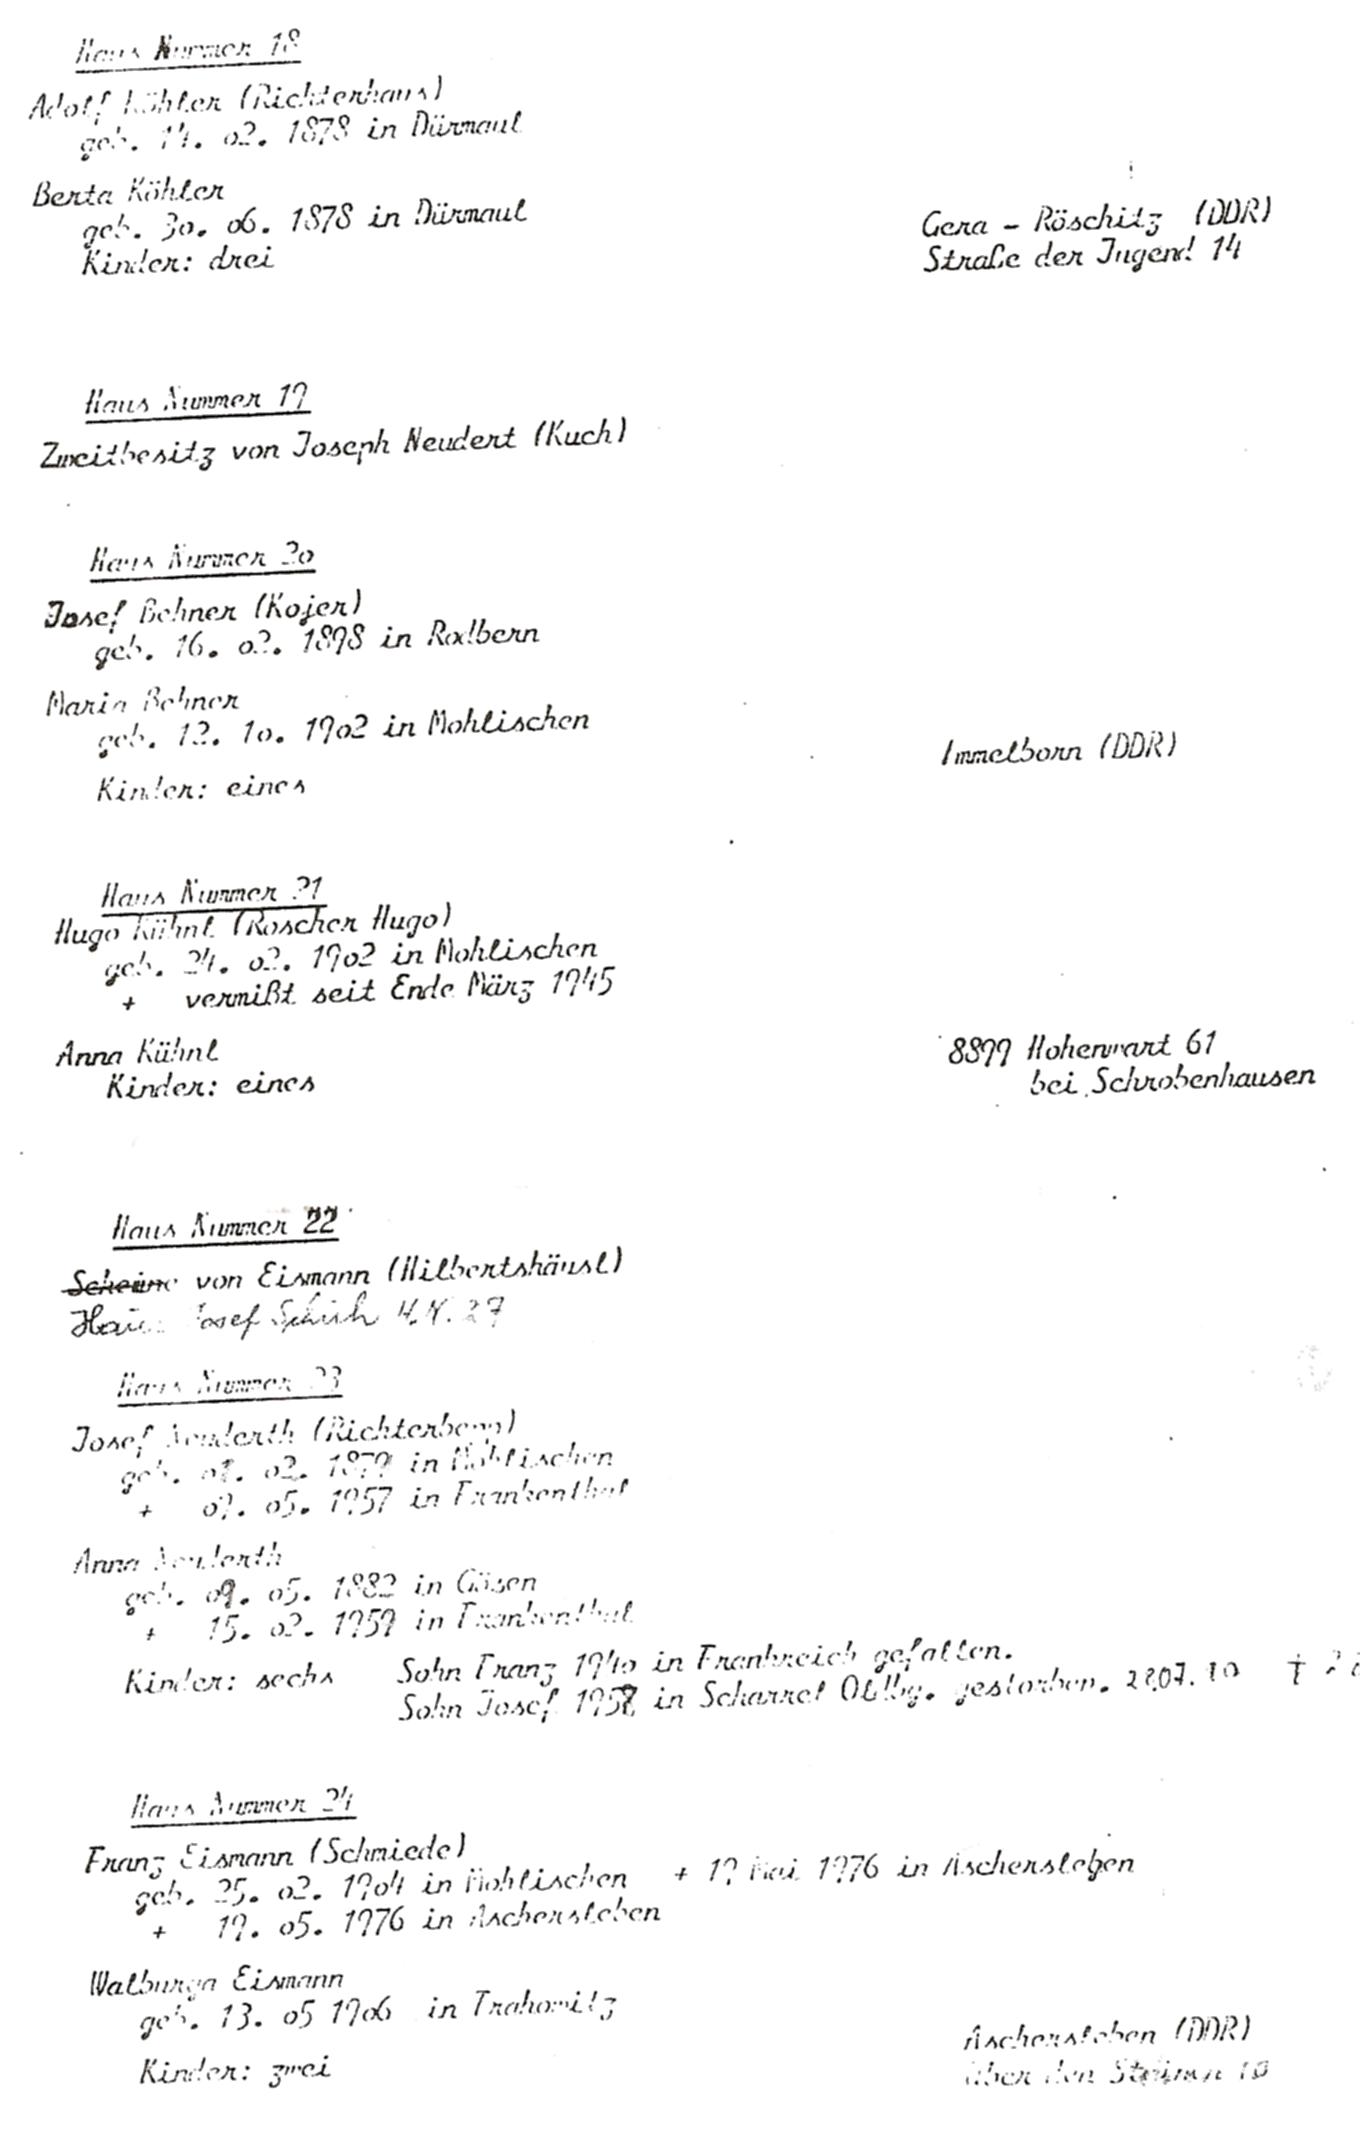 Haus Nummer 18
Adolf Köhler (Richterhaus)
geb. 14. 02. 1878 in Dürmaul
Berta Köhler
geb. 30. 06. 1878 in Dürmaul
Kinder: drei
Gera - Röschitz (DDR)
Straße der Jugend 14
Haus Nummer 19
Zweitbesitz von Joseph Neudert (Kuch)
Haus Nummer 20
Josef Behner (Kojer)
geb. 16. 02. 1898 in Radbern
Maria Behner
geb. 12. 10. 1902 in Mohlischen
Kinder: eines
Immelborn (DDR)
Haus Nummer 21
Hugo Kühnl (Roscher Hugo)
geb. 24. 02. 1902 in Mohlischen
+ vermißt seit Ende März 1945
Anna Kühnl
Kinder: eines
8899 Hohenwart 61
bei Schrobenhausen
Haus Nummer 22
Scheune von Eismann (Hilbertshäusl)
Haus Josef H.N. 27
Haus Nummer 23
Josef Neuderth (Richterbepp)
geb. 02. 1879 in Mohlischen
+ 09. 05. 1957 in Frankenthal
Anna Neuderth
geb. 09. 05. 1882 in Gösen
+ 15. 02. 1959 in Frankenthal
Kinder: sechs Sohn Franz 1940 in Frankreich gefallen.
Sohn Josef 1958 in Scharrel Oldbg. gestorben. 28.07.10 †
Haus Nummer 24
Franz Eismann (Schmiede)
geb. 25. 02. 1904 in Mohlischen + 19 Mai 1976 in Aschersleben
+ 19. 05. 1976 in Aschersleben
Walburga Eismann
geb. 13. 05 1906 in Trahowitz
Kinder: zwei
Aschersleben (DDR)
über den Steinen 10